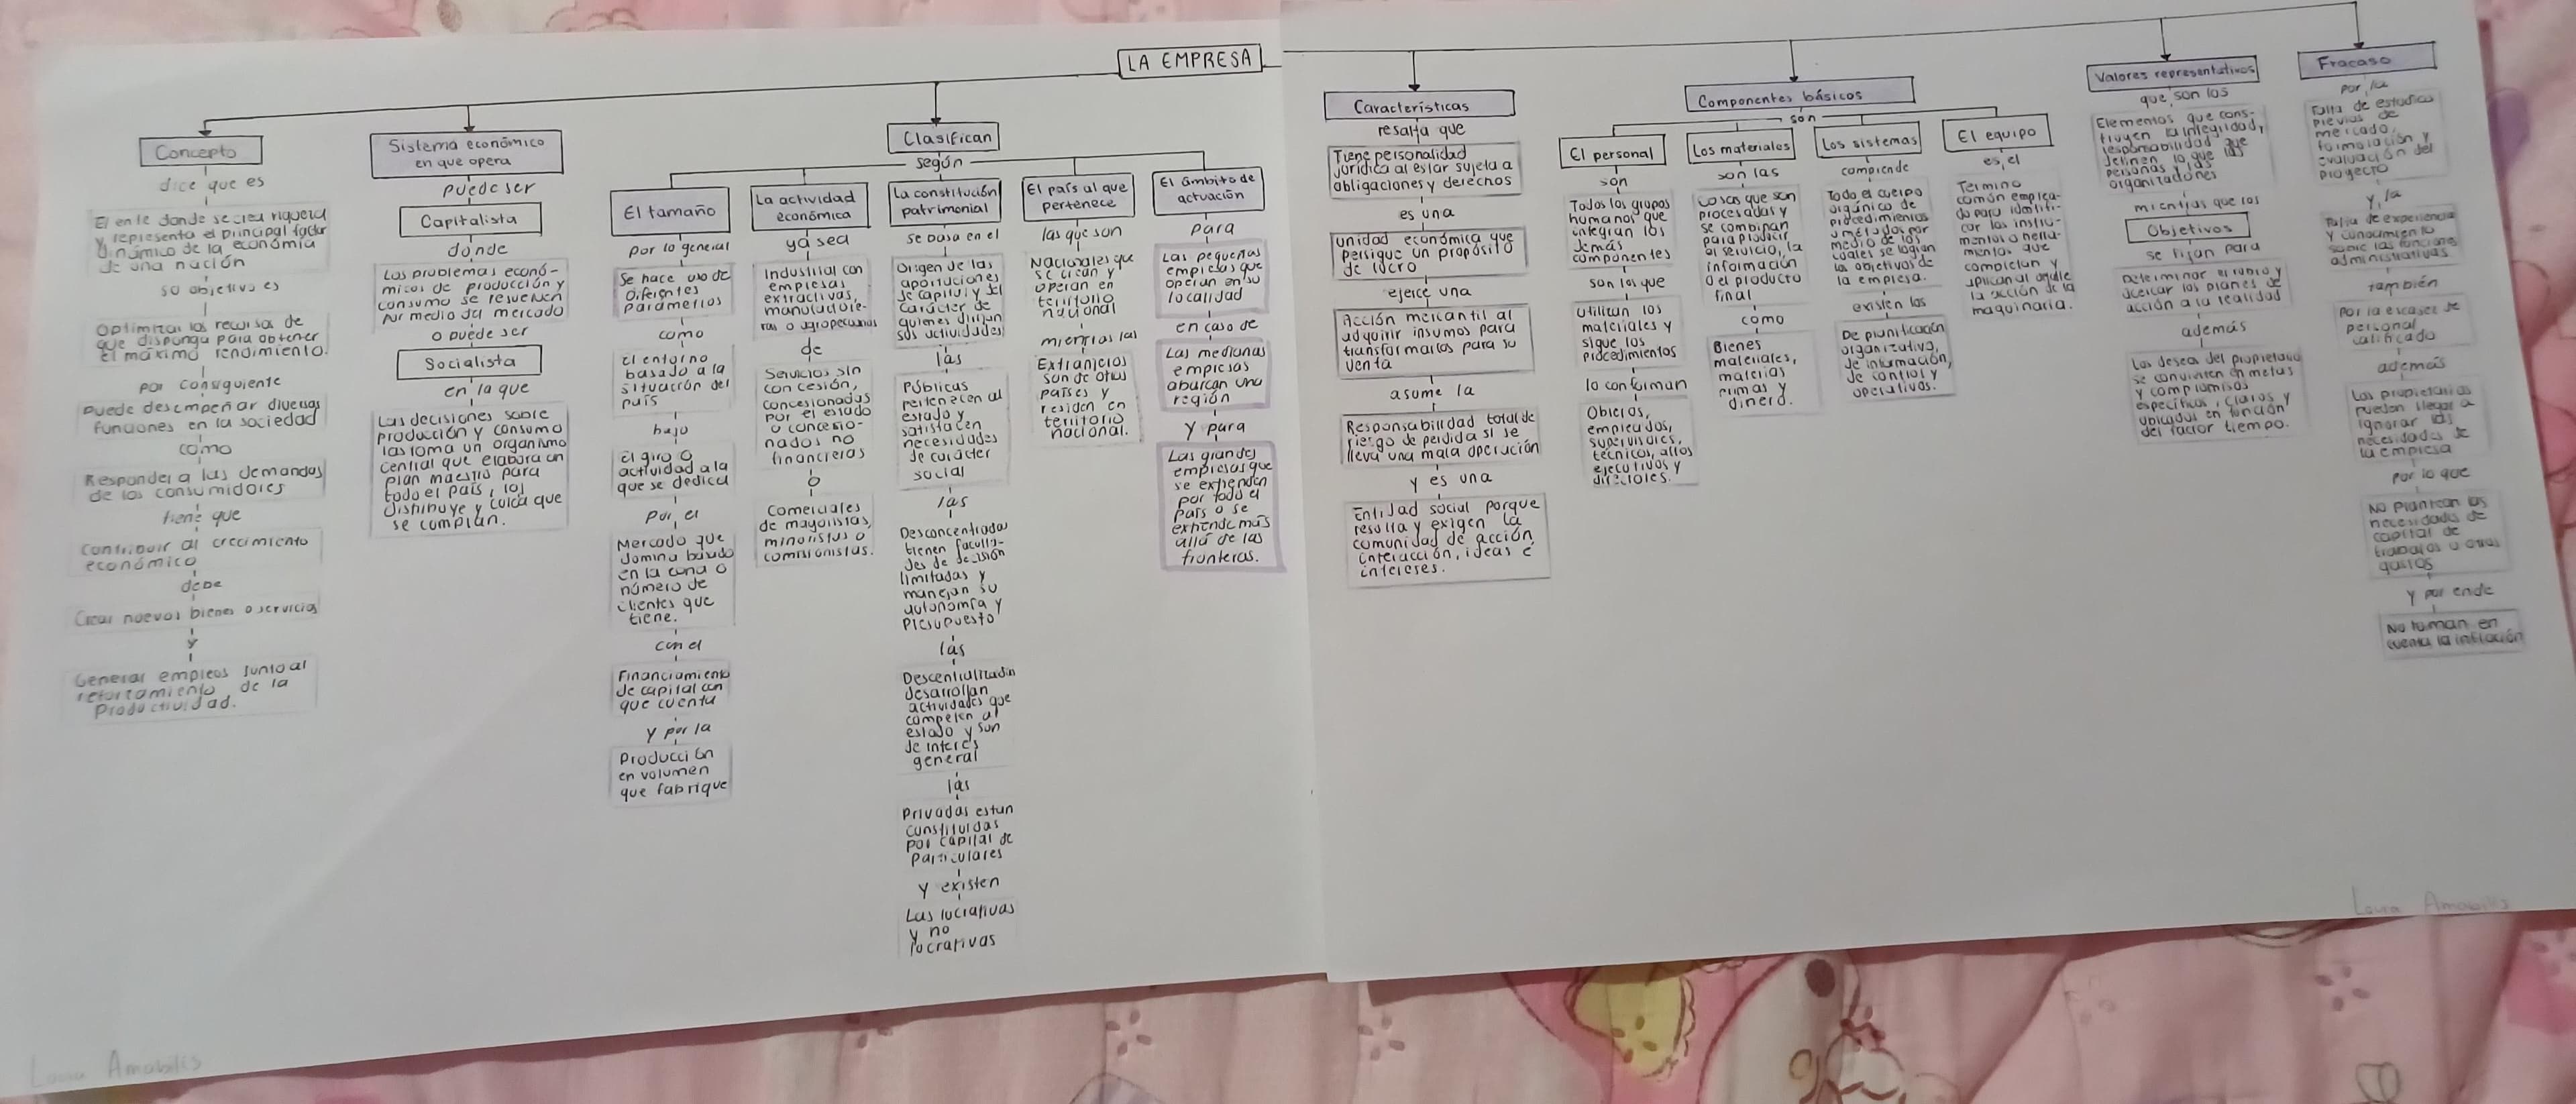 LA EMPRESA
Concepto
dice que es
El ente donde se crea riqueza
y representa el principal factor
dinámico de la economía
de una nación
su objetivo es
Optimizar los recursos de
que disponga para obtener
el máximo rendimiento.
por consiguiente
Puede desempeñar diversas
funciones en la sociedad
como
Responder a las demandas
de los consumidores
tiene que
Contribuir al crecimiento
económico
debe
Crear nuevos bienes o servicios
y
Generar empleos junto al
refortamiento de la
Productividad.
Sistema económico
en que opera
puede ser
Capitalista
donde
Los problemas econó-
micos de producción y
consumo se resuelven
por medio del mercado
o puede ser
Socialista
en la que
Las decisiones sobre
producción y consumo
las toma un organismo
central que elabora un
plan maestro para
todo el país, los
distribuye y cuida que
se cumplan.
Clasifican
según
El tamaño
por lo general
Se hace uso de
diferentes
parametros
como
El entorno
basado a la
situación del
país
bajo
El giro o
actividad a la
que se dedica
por el
Mercado que
domina basado
en la
número de
clientes que
tiene.
con el
Financiamiento
de capital con
que cuenta
y por la
Producción
en volumen
que fabrique
La actividad
económica
ya sea
Industrial con
empresas
extractivas,
manufacture-
ras o agropecuarias
de
Servicios sin
concesión,
concesionadas
por el estado
o concesio-
nados no
financieras
o
Comerciales
de mayoristas,
minoristas o
comisionistas.
La constitución
patrimonial
se basa en el
Origen de las
aportaciones
de capital y del
carácter de
quienes dirijan
sus actividades
las
Públicas
pertenecen al
estado y
satisfacen
necesidades
de carácter
social
las
Desconcentradas
tienen faculta-
des de decisión
limitadas y
manejan su
autonomía y
Presupuesto
las
Descentralizadas
desarrollan
actividades que
competen al
estado y son
de interés
general
las
Privadas estan
constituidas
por capital de
particulares
y existen
Las lucrativas
y no
lucrativas
El país al que
pertenece
las que son
Nacionales que
se crean y
operan en
territorio
nacional
mientras las
Extranjeros
son de otros
países y
residen en
territorio
nacional.
El ámbito de
actuación
para
Las pequeñas
empresas que
operan en su
localidad
en caso de
Las medianas
empresas
abarcan una
región
y para
Las grandes
empresas que
se extienden
por todo el
país o se
extiende más
allá de las
fronteras.
Características
resalta que
Tiene personalidad
jurídica al estar sujeta a
obligaciones y derechos
es una
unidad económica que
persigue un propósito
de lucro
ejerce una
Acción mercantil al
adquirir insumos para
transformarlos para su
venta
asume la
Responsabilidad total de
riesgo de perdida si se
lleva una mala operación
y es una
Entidad social porque
resulta y exigen la
comunidad de acción,
interacción, ideas e
intereses.
Componentes básicos
son
El personal
son
Todos los grupos
humanos que
integran los
demás
componentes
son los que
Utilizan los
materiales y
sigue los
procedimientos
lo conforman
Obreros,
empleados,
supervisores,
técnicos, altos
ejecutivos y
directores.
Los materiales
son las
cosas que son
procesadas y
se combinan
para producir
el servicio, la
información
o el producto
final
como
Bienes
materiales,
materias
primas y
dinero.
Los sistemas
comprende
Todo el cuerpo
orgánico de
procedimientos
o métodos por
medio de los
cuales se logran
los objetivos de
la empresa.
existen los
De planificación
organizativo,
de información,
de control y
operativos.
El equipo
es el
Termino
común emplea-
do para identifi-
car los instru-
mentos o herra-
mientas que
completan y
aplican al detalle
la acción de la
maquinaria.
Valores representativos
que son los
Elementos que cons-
tituyen la integridad,
responsabilidad que
definen lo que las
personas y las
organizaciones
mientras que los
Objetivos
se fijan para
Determinar el rubro y
acercar los planes de
acción a la realidad
además
Los deseos del propietario
se convierten en metas
y compromisos
específicos, claros y
ubicados en función
del factor tiempo.
Fracaso
por la
Falta de estudios
previos de
mercado,
formulación y
evaluación del
proyecto
y la
Falta de experiencia
y conocimiento
sobre las funciones
administrativas.
también
Por la escasez de
personal
calificado
además
Los propietarios
pueden llegar a
ignorar las
necesidades de
la empresa
por lo que
No plantean las
necesidades de
capital de
trabajos u otros
gastos
y por ende
No toman en
cuenta la inflación
Laura Amabilis
Laura Amabilis